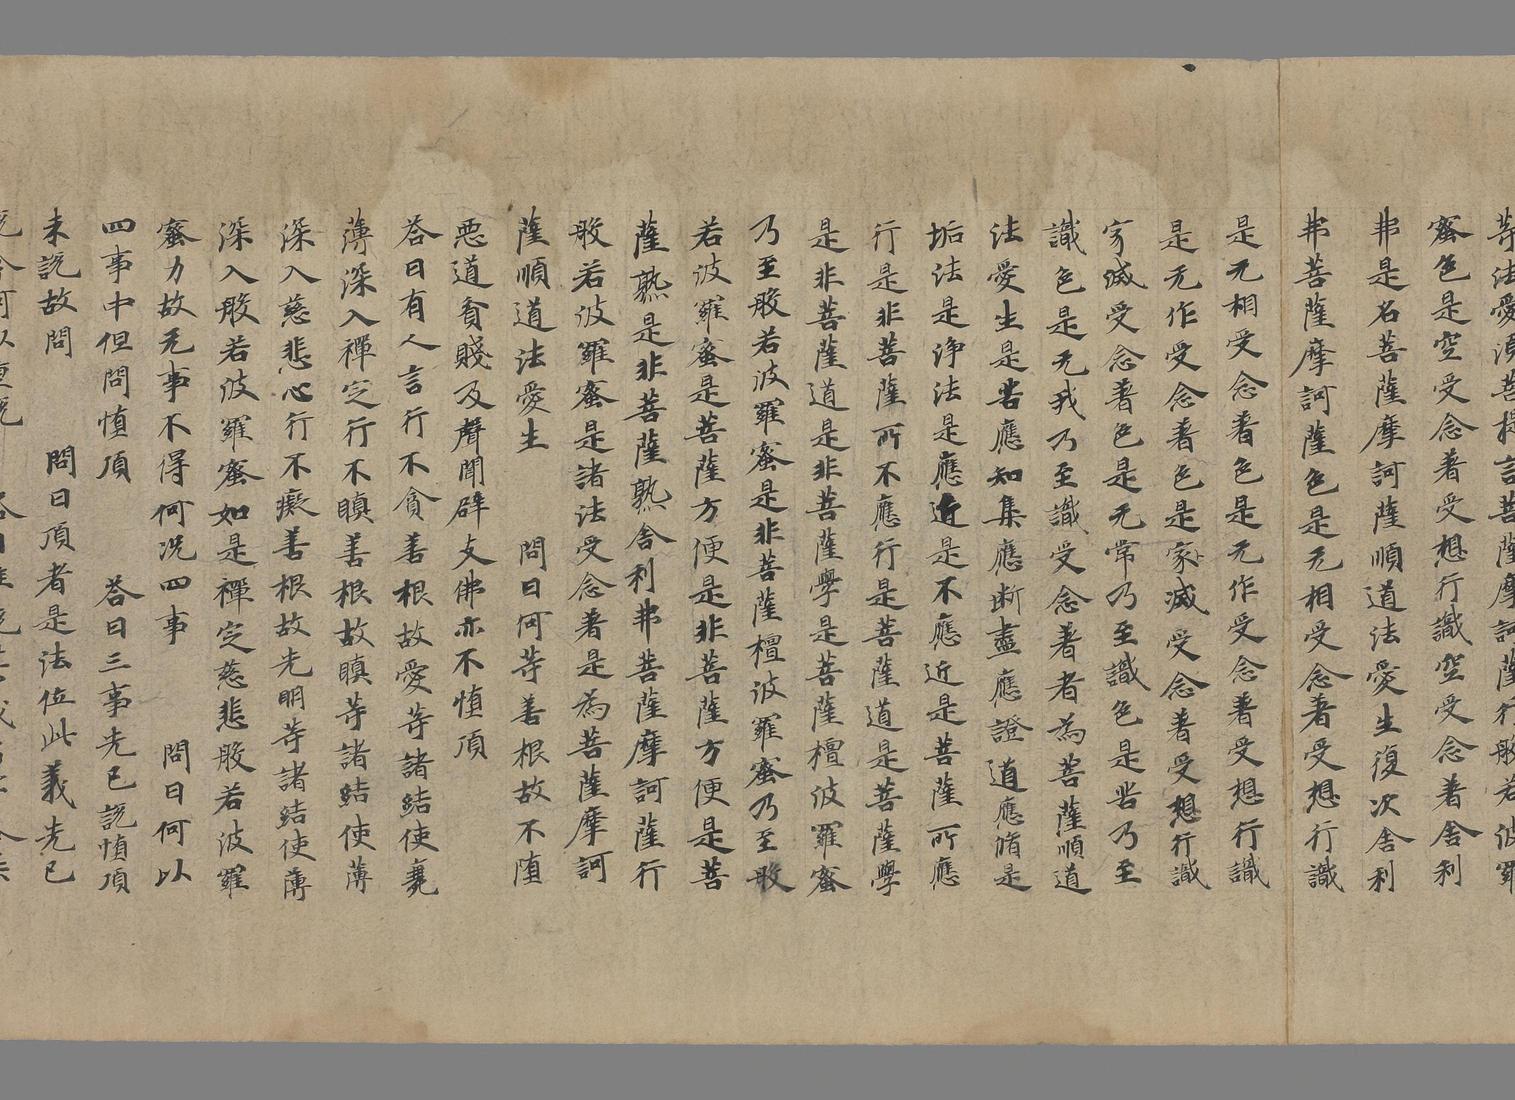 菩法愛須菩提言菩薩摩訶薩行般若波羅
蜜色是空受念著受想行識空受念著舍利
弗是名菩薩摩訶薩順道法愛生復次舍利
弗菩薩摩訶薩色是无相受念著受想行識
是无相受念著色是无作受念著受想行識
是无作受念著色是寂滅受念著受想行識
寂滅受念著色是无常乃至識色是苦乃至
識色是无我乃至識受念著者為菩薩順道
法愛生是苦應知集應断盡應證道應脩是
垢法是淨法是應近是不應近是菩薩所應
行是非菩薩所不應行是菩薩道是菩薩學
是非菩薩道是非菩薩學是菩薩檀波羅蜜
乃至般若波羅蜜是非菩薩檀波羅蜜乃至般
若波羅蜜是菩薩方便是非菩薩方便是菩
薩熟是非菩薩熟舍利弗菩薩摩訶薩行
般若波羅蜜是諸法受念著是為菩薩摩訶
薩順道法愛生 問曰何等善根故不堕
惡道貧賤及聲聞辟支佛亦不慎頂
荅曰有人言行不貪善根故愛等諸結使衰
薄深入禪定行不瞋善根故瞋等諸結使薄
深入慈悲心行不癡善根故无明等諸結使薄
深入般若波羅蜜如是禪定慈悲般若波羅
蜜力故无事不得何况四事 問曰何以
四事中但問慎頂 荅曰三事先已說慎頂
未說故問 問曰頂者是法位此義先已